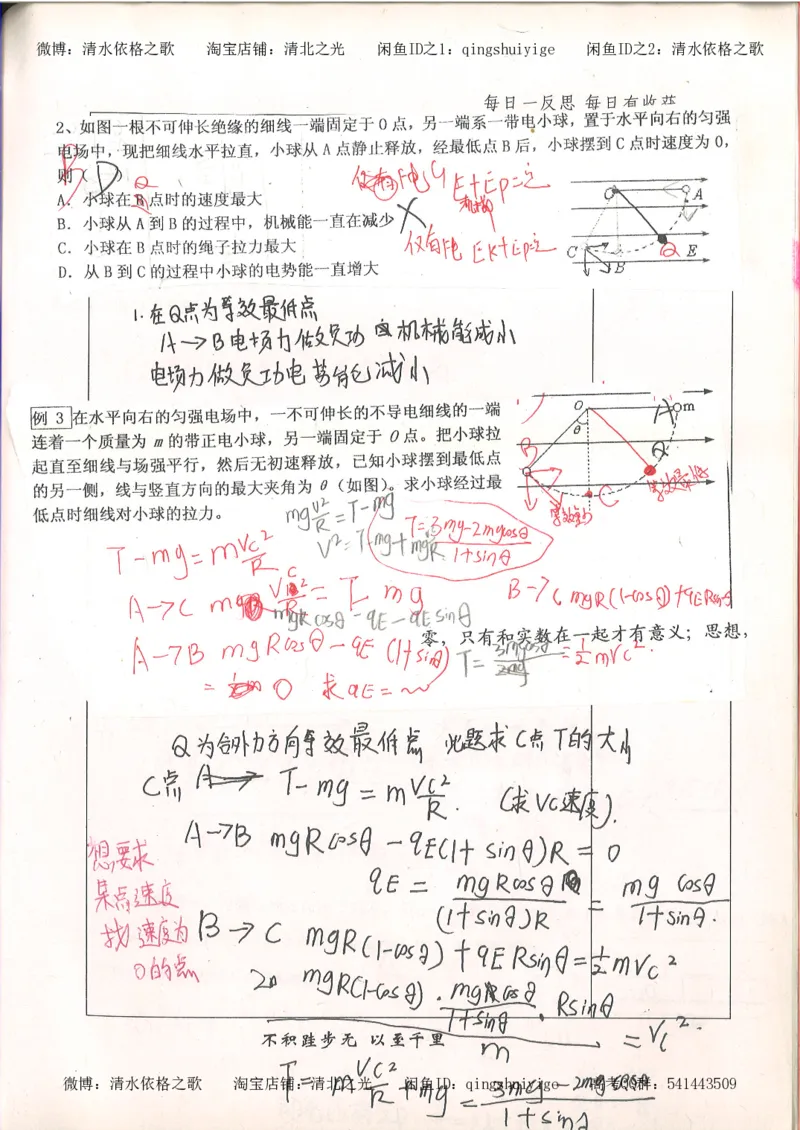 微博：清水依格之歌 淘宝店铺：清北之光 闲鱼ID之1：qingshuiyige 闲鱼ID之2：清水依格之歌
每日一反思 每日有收获
2、如图一根不可伸长绝缘的细线一端固定于 O 点，另一端系一带电小球，置于水平向右的匀强
电场中，现把细线水平拉直，小球从 A 点静止释放，经最低点 B 后，小球摆到 C 点时速度为 0，
则（ D ）
A．小球在 B 点时的速度最大
Q
B．小球从 A 到 B 的过程中，机械能一直在减少
C．小球在 B 点时的绳子拉力最大
D．从 B 到 C 的过程中小球的电势能一直增大
E+Ep=定
机械
仅有电 Ek+Ep=定
O A
C B Q E
1.在Q点为等效最低点
A→B电场力做负功 机械能减小
电场力做负功电势能减小
例 3 在水平向右的匀强电场中，一不可伸长的不导电细线的一端
连着一个质量为 m 的带正电小球，另一端固定于 O 点。把小球拉
起直至细线与场强平行，然后无初速释放，已知小球摆到最低点
的另一侧，线与竖直方向的最大夹角为 θ（如图）。求小球经过最
低点时细线对小球的拉力。
O θ A m
B C Q
等效最低
mg V²/R = T-mg
V²= T-mg+mgR
T= 3mg-2mgcosθ / 1+sinθ
T-mg=m Vc²/R
A→C
mgRcosθ-qE-qEsinθ
B→C mgR(1-cosθ)+qERsinθ
=½mVc²
零，只有和实数在一起才有意义；思想，
A→B mgRcosθ-qE(1+sinθ)
= 0 求qE=~
T=
Q为合外力方向等效最低点 此题求C点T的大小
C点 T-mg=m Vc²/R. (求Vc速度).
A→B mgRcosθ-qE(1+sinθ)R=0
qE= mgRcosθ / (1+sinθ)R = mg cosθ / 1+sinθ.
想要求
某点速度
找速度为
0的点
B→C mgR(1-cosθ)+qERsinθ=½mVc²
mgR(1-cosθ)·mgRcosθ / 1+sinθ·Rsinθ
m =Vc².
不积跬步无 以至千里
T= m Vc²/R +mg = 3mg-2mgcosθ / 1+sinθ
微博：清水依格之歌 淘宝店铺：清北之光 闲鱼ID：qingshuiyige 高考QQ群：541443509